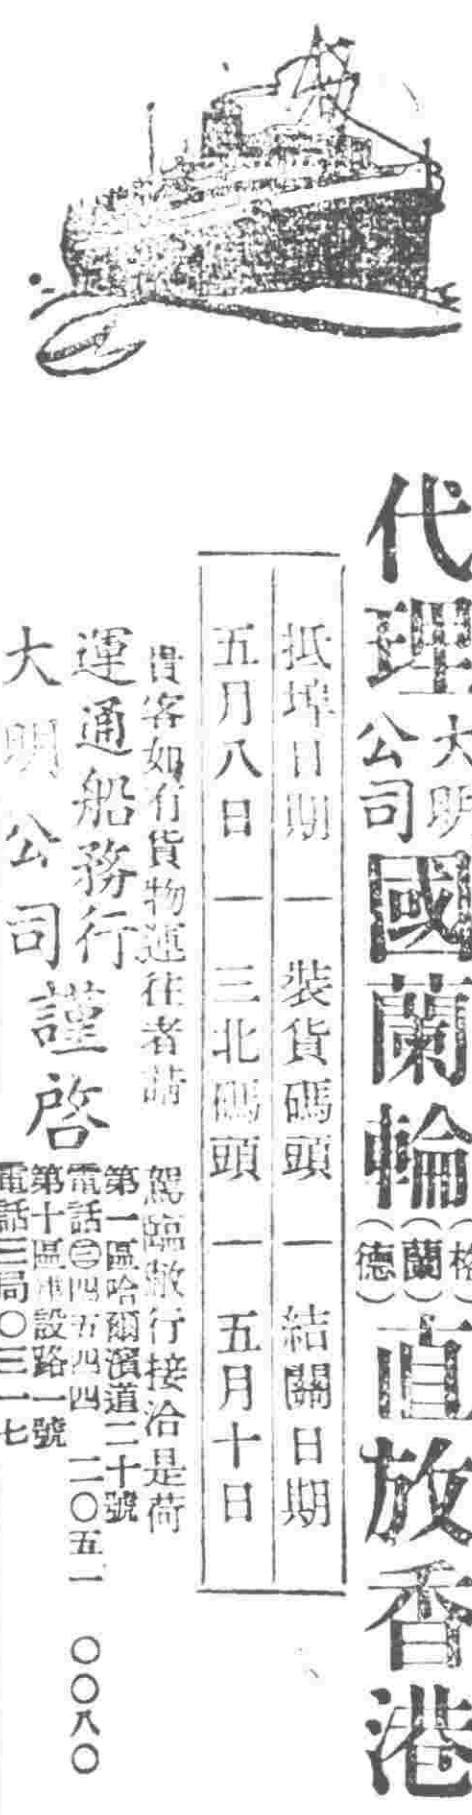 代理大明公司國蘭輪(格)(蘭)(德)直放香港
抵埠日期 — 裝貨碼頭 — 結關日期
五月八日 — 三北碼頭 — 五月十日
貴客如有貨物運往者請
駕臨敝行接洽是荷
運通船務行
大明公司
謹啓
第一區哈爾濱道二十號
電話㊂四五四四 二〇五一 〇〇八〇
第十區建設路一號
電話三局〇三一七